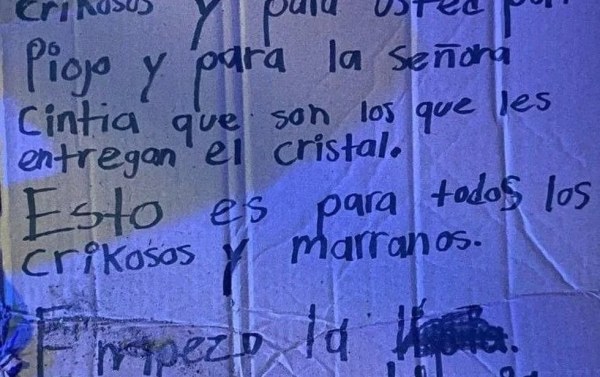 crikosos y para usted
Piojo y para la señora
Cintia que son los que les
entregan el cristal.
Esto es para todos los
crikosos y marranos.
Empezo la